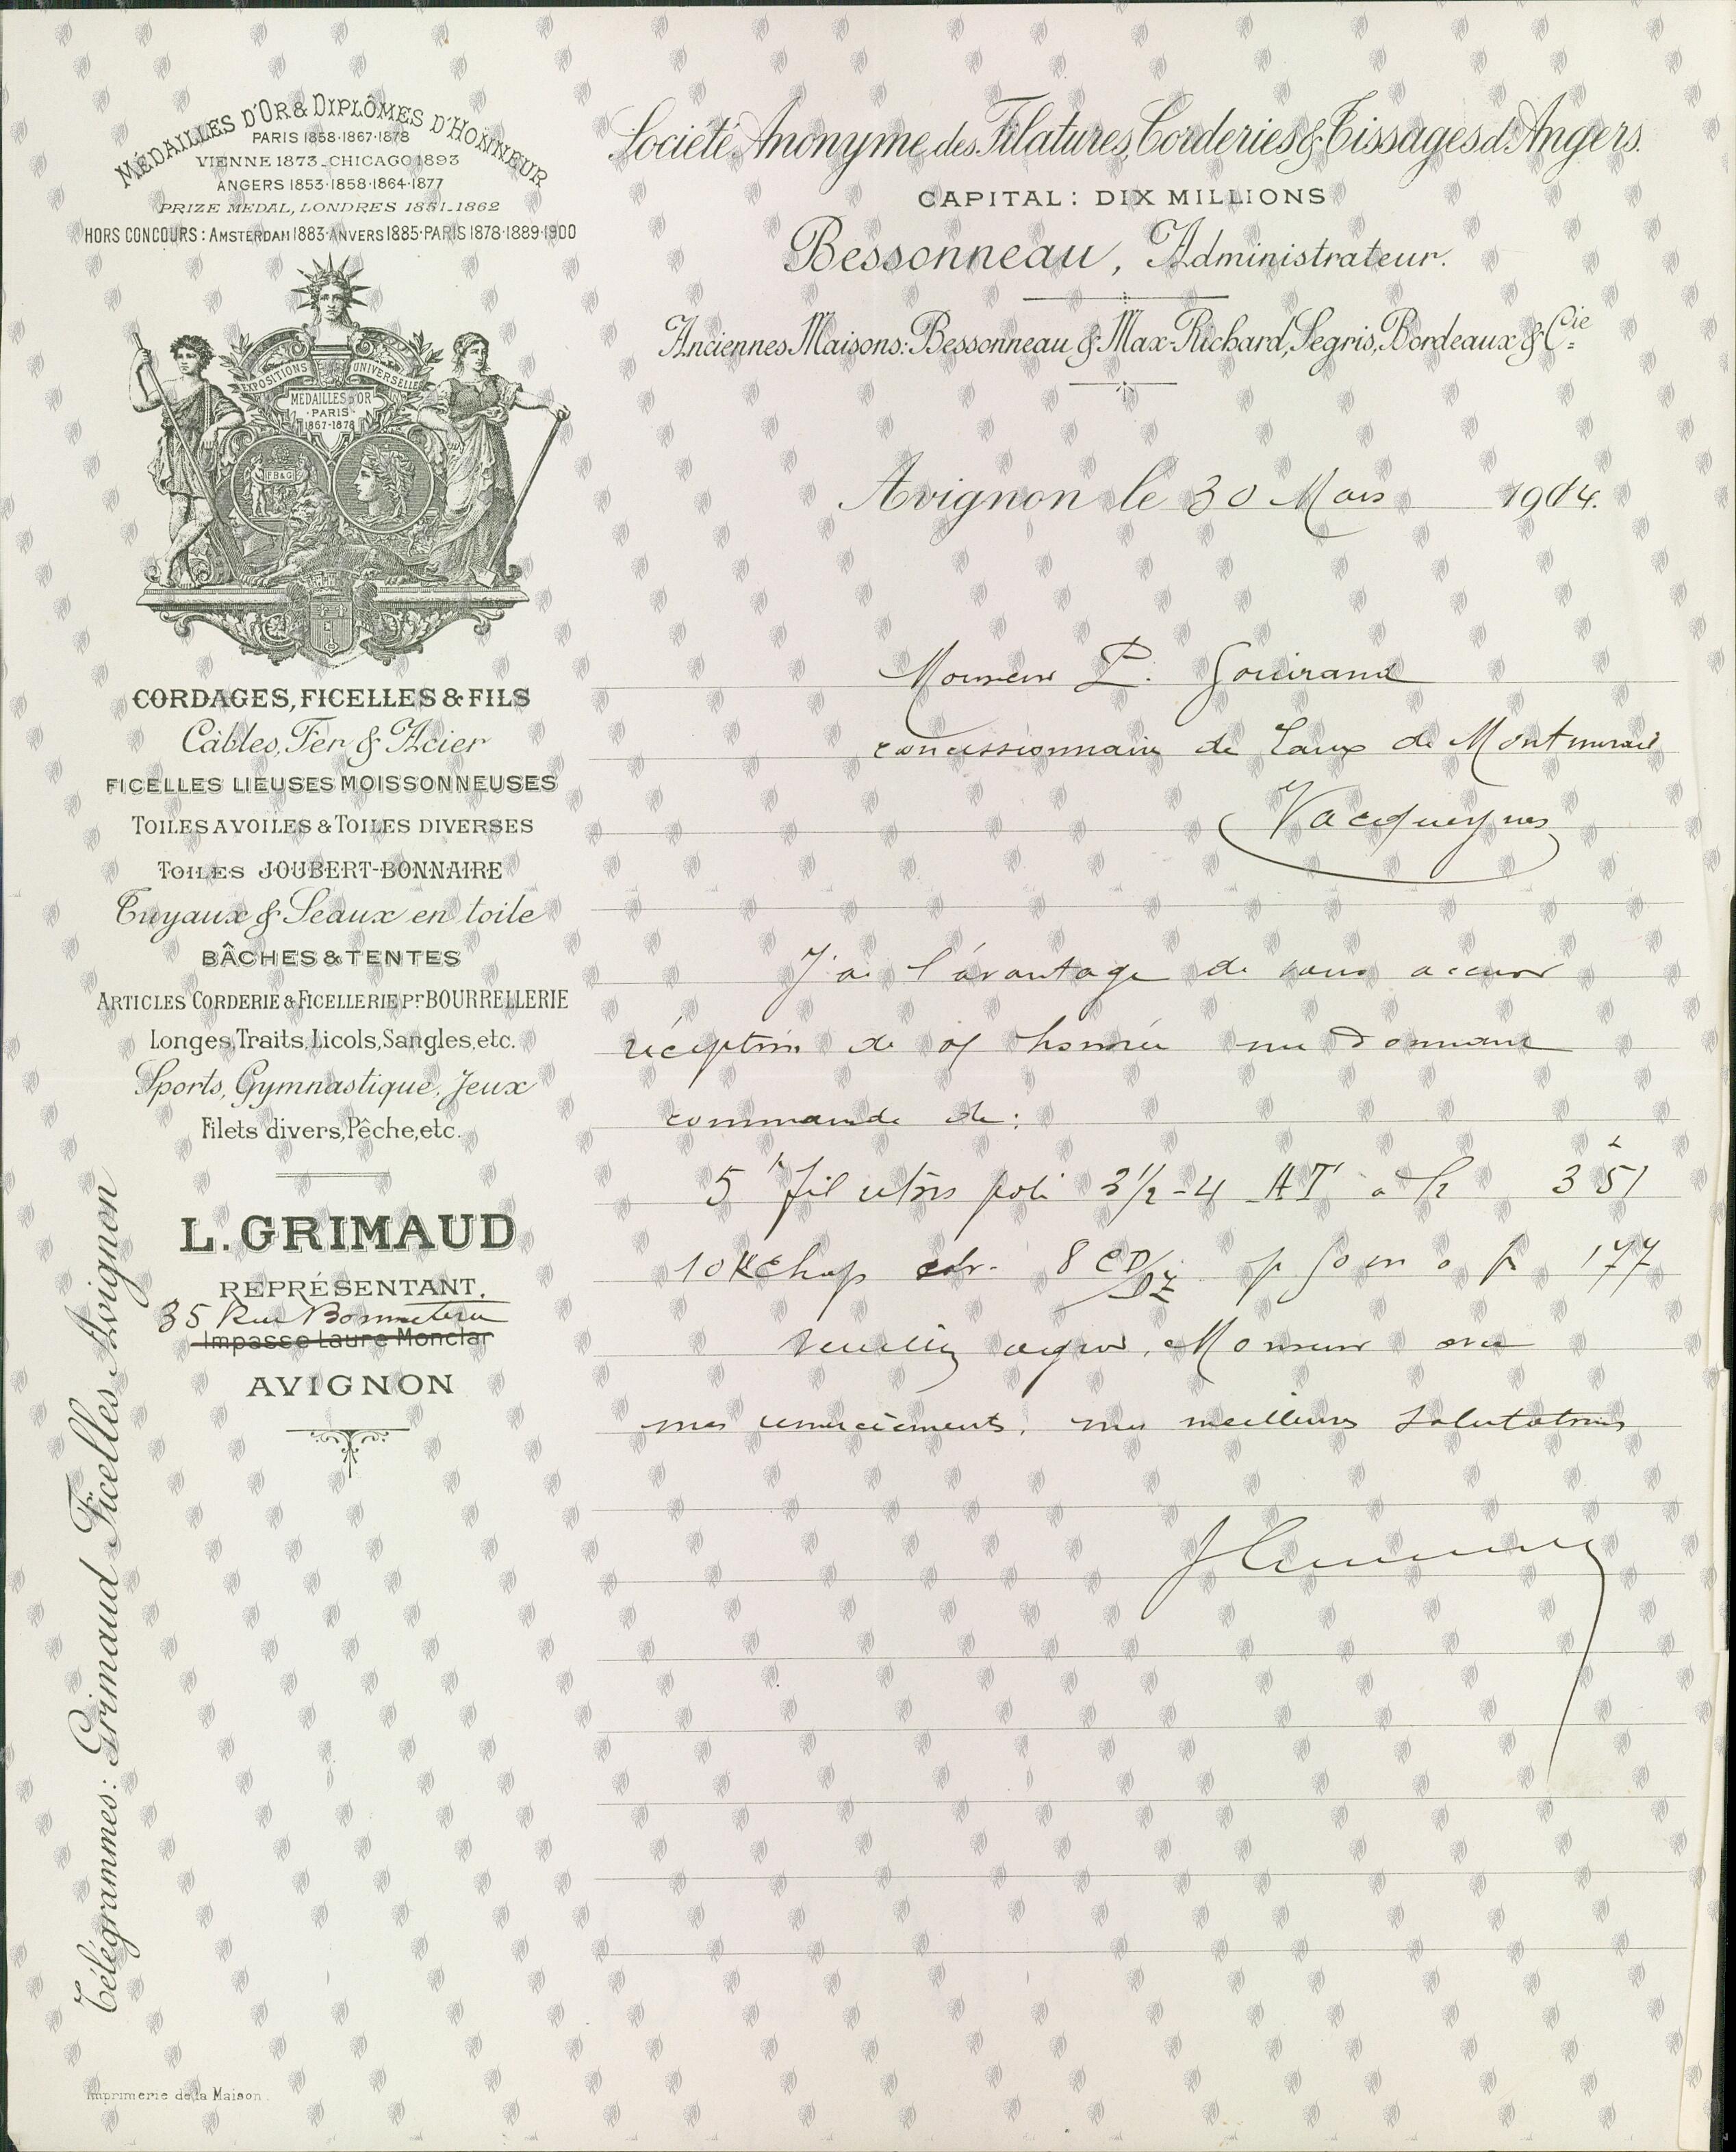 MÉDAILLES D'OR & DIPLÔMES D'HONNEUR
PARIS 1858·1867·1878
VIENNE 1873_CHICAGO 1893
ANGERS 1853·1858·1864·1877
PRIZE MEDAL, LONDRES 1851_1862
HORS CONCOURS: AMSTERDAM 1883·ANVERS 1885·PARIS 1878·1889·1900
EXPOSITIONS UNIVERSELLES
MÉDAILLES D'OR
PARIS
1867·1878
FB&G
CORDAGES, FICELLES & FILS
Câbles, Fer & Acier
FICELLES LIEUSES MOISSONNEUSES
TOILES A VOILES & TOILES DIVERSES
TOILES JOUBERT-BONNAIRE
Tuyaux & Seaux en toile
BÂCHES & TENTES
ARTICLES CORDERIE & FICELLERIE Pr BOURRELLERIE
Longes, Traits, Licols, Sangles, etc.
Sports, Gymnastique, Jeux
Filets divers, Pêche, etc.
L. GRIMAUD
REPRÉSENTANT,
35 Rue Bonneterie
Impasse Laure Monclar
AVIGNON
Télégrammes: Grimaud Ficelles Avignon
Imprimerie de la Maison.
Société Anonyme des Filatures, Corderies & Tissages d'Angers.
CAPITAL: DIX MILLIONS
Bessonneau, Administrateur.
Anciennes Maisons: Bessonneau & Max-Richard, Segris, Bordeaux & Cie
Avignon le 30 Mars 1904.
Monsieur P. Gouirand
concessionnaire de Eaux de Montmirail
Vacqueyras
J'ai l'avantage de vous accuser
réception de honorée me donnant
commande de:
5 k fil poli 3 1/2-4 AT à 3 51
10 K Chap 8 CD/DZ p 177
Veuillez agréer, Monsieur avec
mes remerciements, mes meilleures salutations